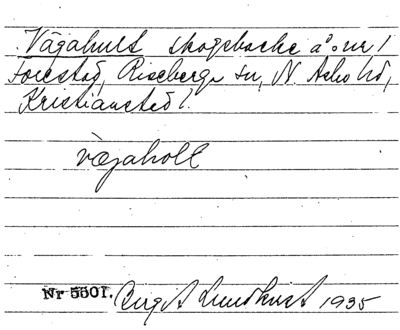 Vågahult skogsbacke å nr 1
Forestad, Riseberga sn, N. Åsbo hd,
Kristianstad l.
vægaholt
Nr 5501. Birgit Lundkvist 1935